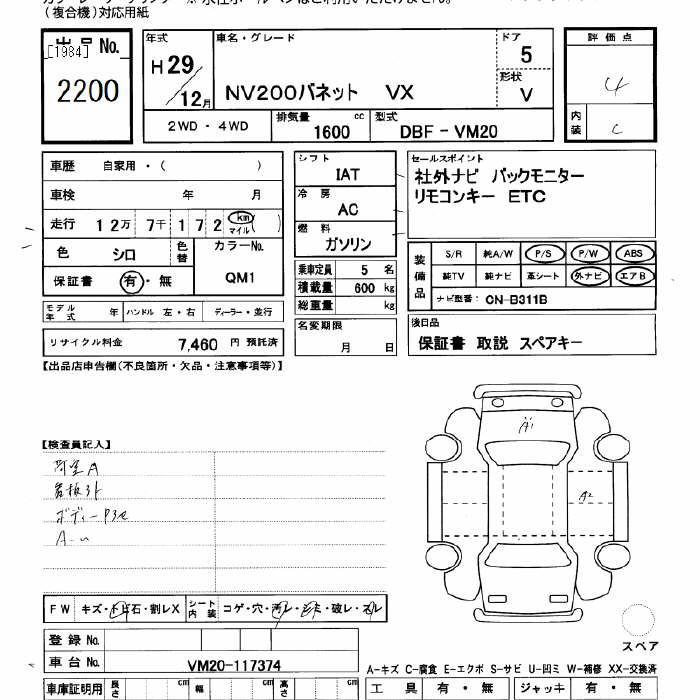 (複合機)対応用紙
出品 No.
[1984]
2200
年式
H29/12月
車名・グレード
NV200バネット VX
ドア
5
形状
V
評価点
4
内装
C
2WD・4WD
排気量
1600 cc
型式
DBF-VM20
車歴 自家用・( )
車検 年 月
走行 12万 7千 172 km マイル ( )
色 シロ
色替
カラーNo.
QM1
保証書 有・無
モデル年式 年
ハンドル 左・右
ディーラー・並行
リサイクル料金 7,460 円 預託済
シフト
IAT
冷房
AC
燃料
ガソリン
乗車定員 5 名
積載量 600 kg
総重量 kg
名変期限
月 日
セールスポイント
社外ナビ バックモニター
リモコンキー ETC
装備品
S/R 純A/W P/S P/W ABS
純TV 純ナビ 革シート 外ナビ エアB
ナビ型番: CN-B311B
後日品
保証書 取説 スペアキー
【出品店申告欄(不良箇所・欠品・注意事項等)】
【検査員記入】
A1
A2
FW キズ・トビ石・割レX
シート内装 コゲ・穴・汚レ・シミ・破レ・スレ
登録 No.
車台 No. VM20-117374
車庫証明用 長さ cm 幅 cm 高さ cm
スペア
A-キズ C-腐食 E-エクボ S-サビ U-凹ミ W-補修 XX-交換済
工具 有・無 ジャッキ 有・無